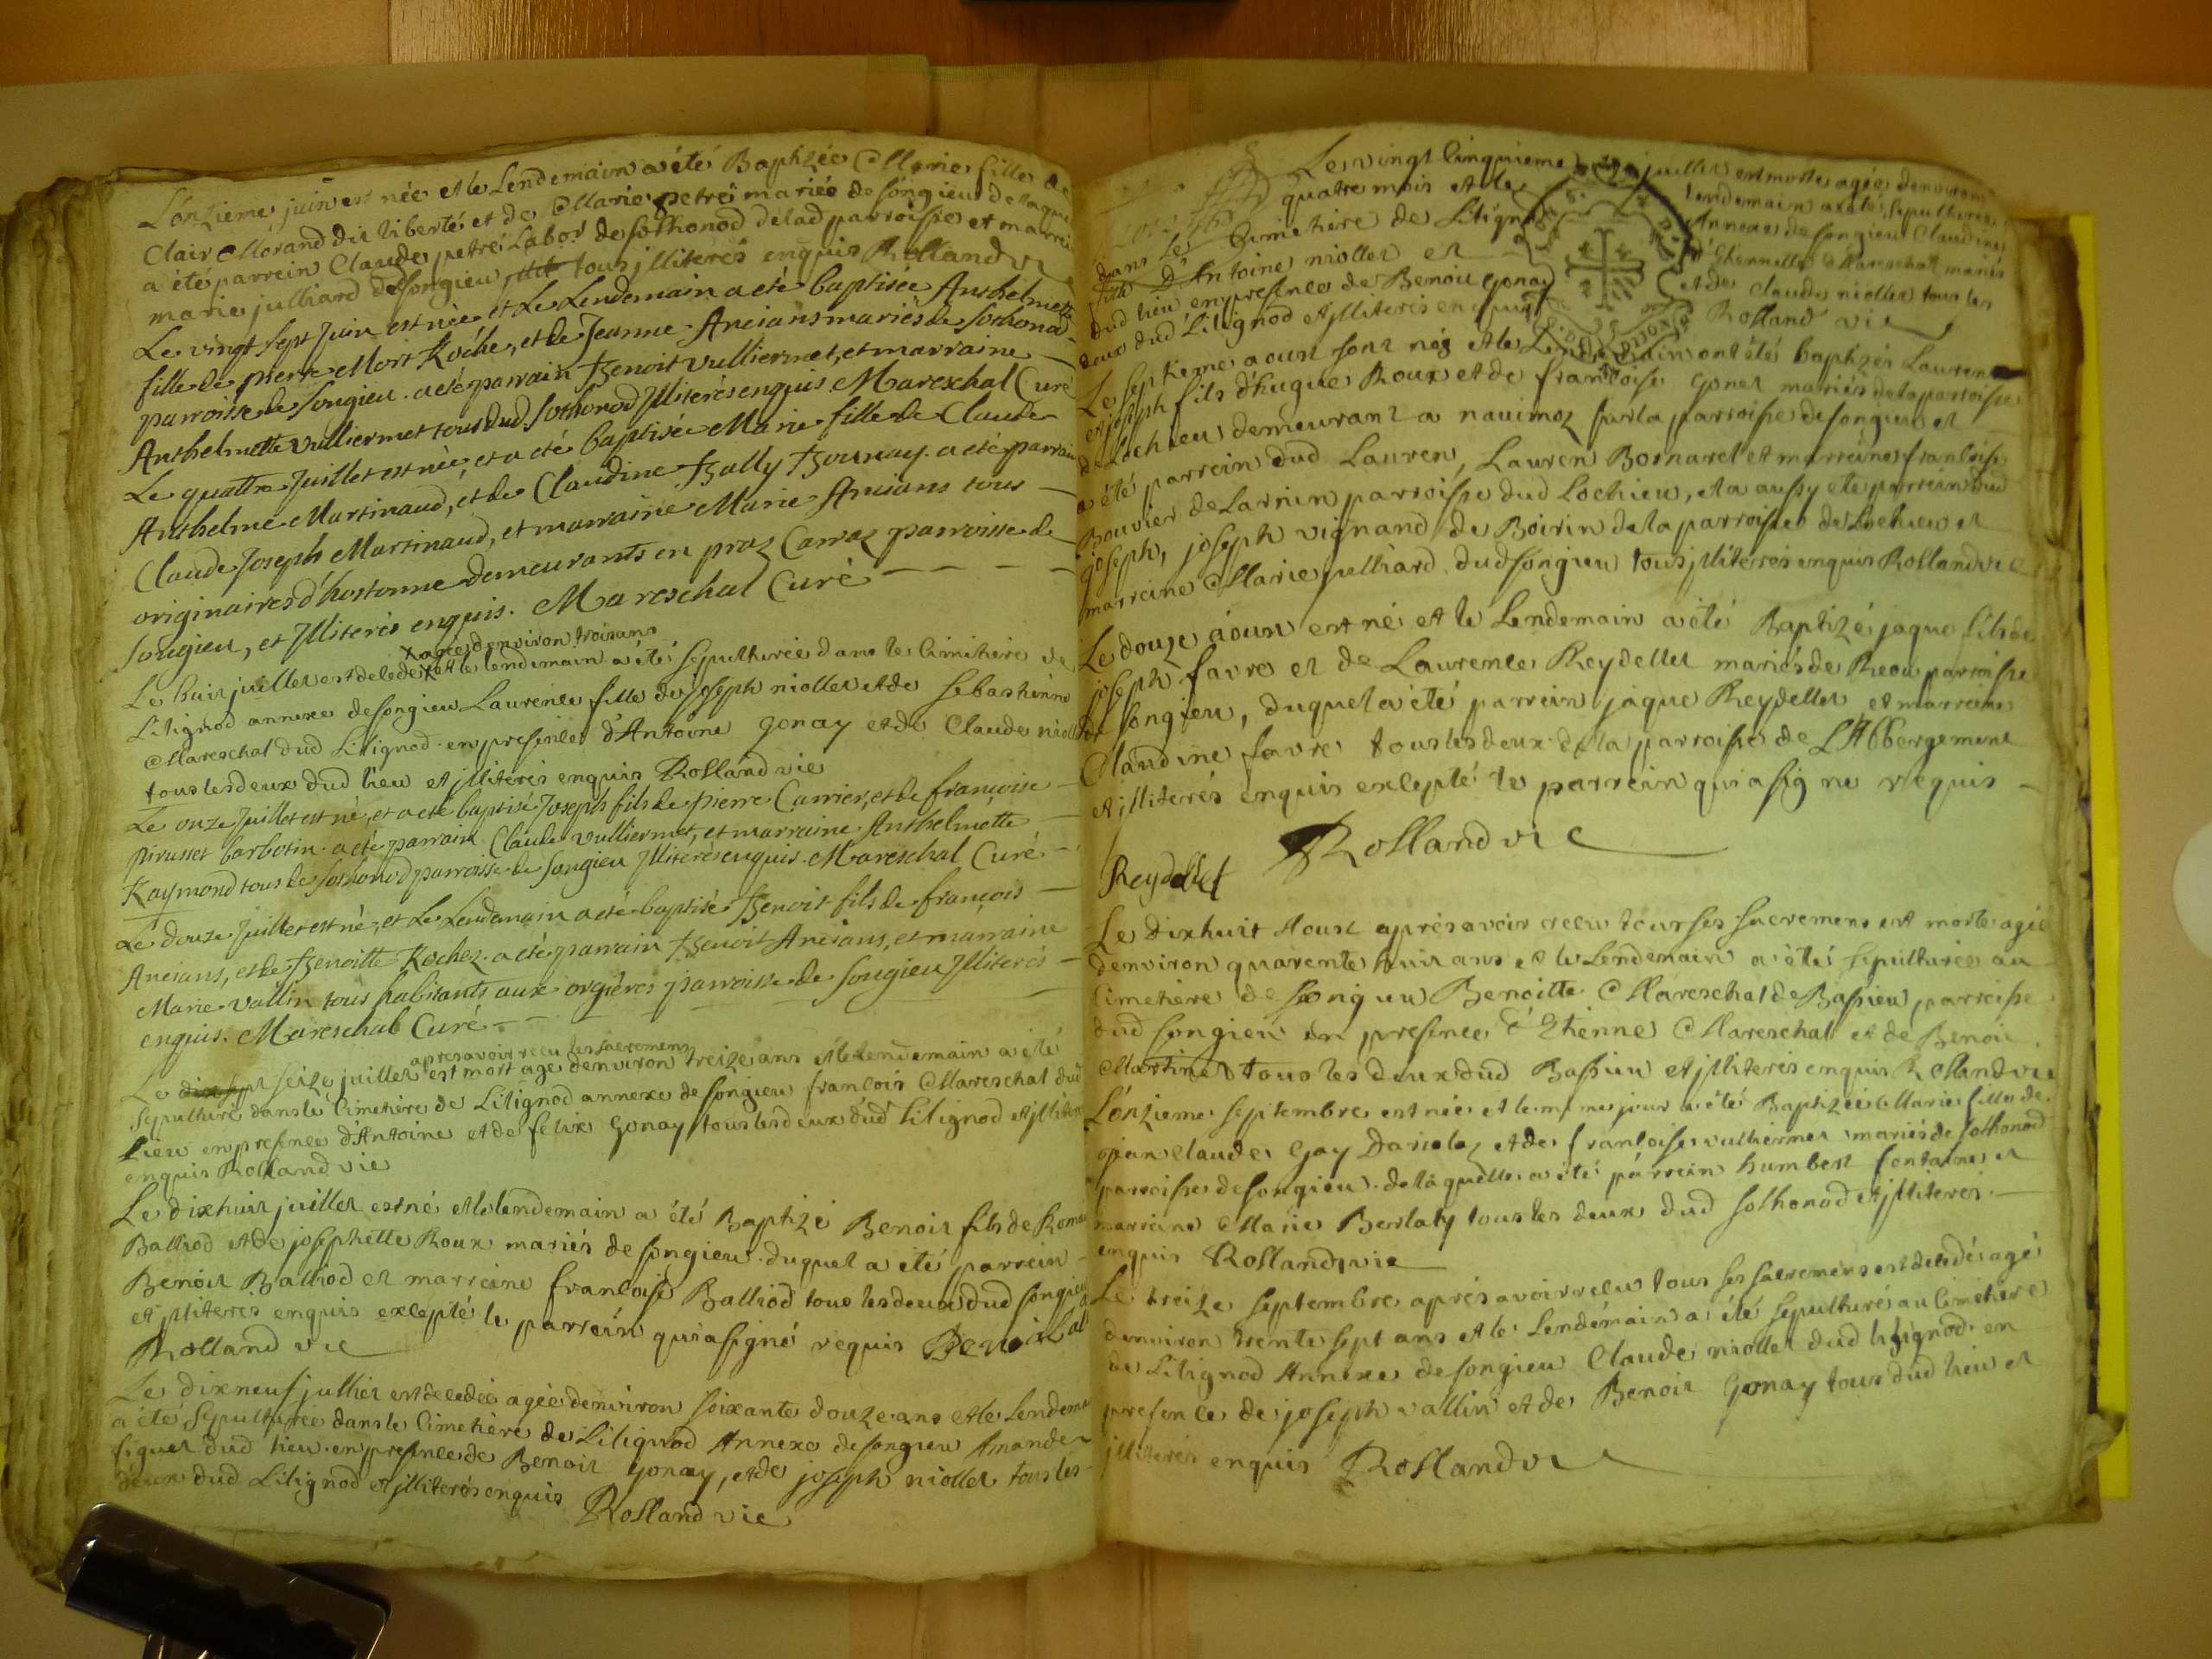 L'onzieme juin est née et le Lendemain a été Baptizée Marie fille de
Clair Morand dit liberté et de Marie petreï mariée de songieu de laquelle
a été parrein Claude petreï Labor de sothonod de lad parroisse et marreine
marie julliard de songieu tous jlliterés enquis Rolland vic
Le vingt sept Juin est née et Le Lendemain a été baptisée Anthelmette
fille de pierre Mort Roche, et de Jeanne Ancians mariés de sothonod
parroisse de songieu. a été parrain Benoit vulliermet, et marraine
Anthelmette vulliermet tous dud sothonod Jlliterés enquis Mareschal Curé
Le quattre Juillet est née, et a été baptisée Marie fille de Claude
Anthelme Martinaud, et de Claudine Bally Bounay. a été parrain
Claude Joseph Martinaud, et marraine Marie Ancians tous
originaires d'hostonne demeurants en praz Carraz parroisse de
songieu, et Jlliterés enquis. Mareschal Curé
x agée denviron trois ans
Le huit juillet est decedée x et le lendemain a été sepulturée dans le Cimetiere de
Litignod annexe de songieu Laurence fille de joseph niollet et de sebastienne
Mareschal dud Litignod en presence d'Antoine gonay et de Claude niollet
tous les deux dud lieu et jlliterés enquis Rolland vic
Le onze Juillet est né, et a été baptisé Joseph fils de pierre Carrier, et de françoise
pirusset barbotin. a été parrain Claude vulliermet, et marraine Anthelmette
Raymond tous de sothonod parroisse de songieu Jlliterés enquis. Mareschal Curé
Le douze Juillet est né, et Le Lendemain a été baptisé Benoit fils de françois
Ancians, et de Benoitte Rochez. a été parrain Benoit Ancians, et marraine
Marie vallin tous habitants aux orgieres parroisse de songieu Jlliterés
enquis. Mareschal Curé
apres avoir recu les sacremens
Le dix sept seize juillet est mort agé denviron treize ans et le lendemain a été
sepulturé dans le Cimetiere de Litignod annexe de songieu françois Mareschal dud
Lieu en presence d'Antoine et de felix Gonay tous les deux dud Litignod et jlliterés
enquis Rolland vic
Le dixhuit juillet est né et le lendemain a été Baptizé Benoit fils de Romain
Balliod et de josephette Roux mariés de songieu. duquel a été parrein
Benoit Balliod et marreine francoise Balliod tous les deux dud songieu
et jlliteres enquis excepté le parrein qui a signé requis Benoit Bal
Rolland vic
Le dixneuf jullier est decedée agée denviron soixante douze ans et le Lendemain
a été sepulturée dans le Cimetiere de Litignod Annexe de songieu Amande
figuet dud lieu en presence de Benoit gonay, et de joseph niollet tous les
deux dud Litignod et jlliterés enquis Rolland vic
Le vingt Cinquieme juillet est morte agée denviron
quatre mois et le lendemain a été sepulturée
dans Le Cimetiere de Litignod Annexe de songieu Claudine
fille D'Antoine niollet et d'Ghennette Mareschal mariés
dud lieu en presence de Benoit gonay et de Claude niollet tous les
deux dud Litignod et jlliterés enquis Rolland vic
Le septieme aoust sont nés et le Lendemain ont étés baptizés Laurent
et joseph fils d'hugue Roux et de francoise gonet mariés de la parroisse
de Lochieu demeurant a navimoz sur la parroisse de songieu et
a été parrein dud Lauren, Lauren Bornarel et marreine francoise
Bouvier de Larnin parroisse dud Lochieu, et a aussy ete parrein dud
joseph, joseph vignand de Boirin de la parroisse de Lochieu et
marreine Marie julliard dud songieu tous jlliterés enquis Rolland vic
Le douze aoust est né et le Lendemain a été Baptizé jaque fils de
joseph favre et de Laurence Reydellet mariés de Reou parroisse
de songieu, duquel a été parrein jaque Reydellet et marreine
Claudine favre tous les deux de la parroisse de L'Abbergement
et jlliterés enquis excepté le parrein qui a signe requis
Rolland vic
Reydellet
Le dixhuit Aoust apres avoir recu tous ses sacremens est morte agée
denviron quarente huit ans et le Lendemain a été sepulturée au
Cimetiere de songieu Benoitte Mareschal de Bassieu, parroisse
dud songieu en presence d'Etienne Mareschal et de Benoit
Martinet tous les deux dud Bassieu et jlliterés enquis Rolland vic
L'onzieme septembre est née et le meme jour a été Baptizée Marie fille de
jean claude Gay Dariolaz et de francoise vulliermet mariés de sothonod
parroisse de songieu. de laquelle a été parrein humbert fontaine et
marreine Marie Berlaty tous les deux dud sothonod et jlliteres
enquis Rolland vic
Le treize septembre aprés avoir recu tous ses sacremens est decedé agé
denviron trente sept ans et le Lendemain a été sepulturé au Cimetiere
de Litignod Annexe de songieu Claude niollet dud litignod en
presence de joseph vallin et de Benoit Gonay tous dud lieu et
jlliterés enquis Rolland vic